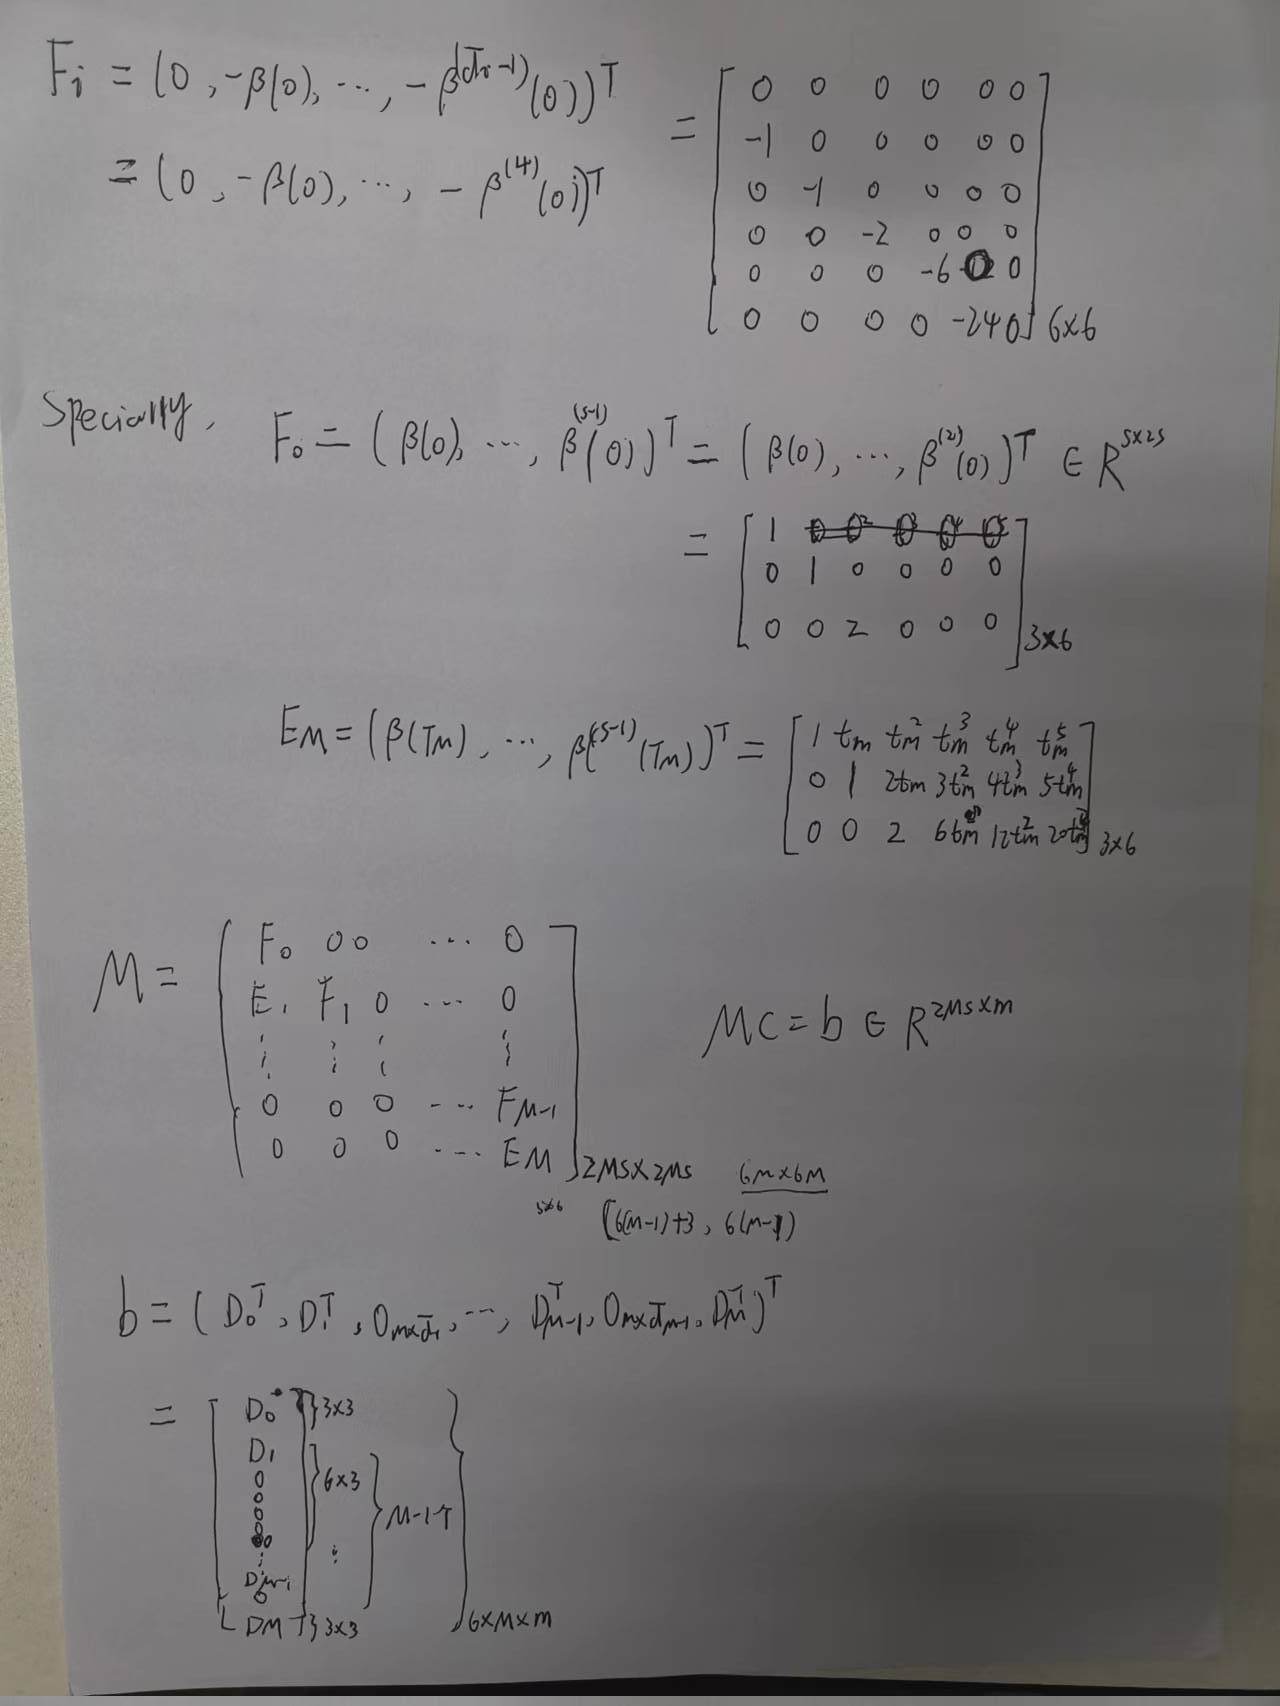 Fi = (0, -β(0), ..., -β^(d̄i-1)(0))^T
= (0, -β(0), ..., -β^(4)(0))^T
= [ 0 0 0 0 0 0
-1 0 0 0 0 0
0 -1 0 0 0 0
0 0 -2 0 0 0
0 0 0 -6 0 0
0 0 0 0 -24 0 ] 6×6
Specially, F0 = (β(0), ..., β^(s-1)(0))^T = (β(0), ..., β^(2)(0))^T ∈ R^(s×2s)
= [ 1
0 1 0 0 0 0
0 0 2 0 0 0 ] 3×6
EM = (β(TM), ..., β^(s-1)(TM))^T = [ 1 tm tm^2 tm^3 tm^4 tm^5
0 1 2tm 3tm^2 4tm^3 5tm^4
0 0 2 6tm 12tm^2 20tm^3 ] 3×6
M = [ F0 0 0 ... 0
E1 F1 0 ... 0
⋮ ⋮ ⋮ ⋮
0 0 0 ... FM-1
0 0 0 ... EM ] 2Ms×2Ms 6M×6M
MC = b ∈ R^(2Ms×m)
3×6 (6(M-1)+3, 6(M-1))
b = (D0^T, D1^T, 0m×d̄1, ..., DM-1^T, 0m×d̄M-1, DM^T)^T
= [ D0 } 3×3
D1
0 } 6×3
0
0 } M-1个
0
0
⋮ ⋮
DM-1
0
DM ] } 3×3 } 6×M×m